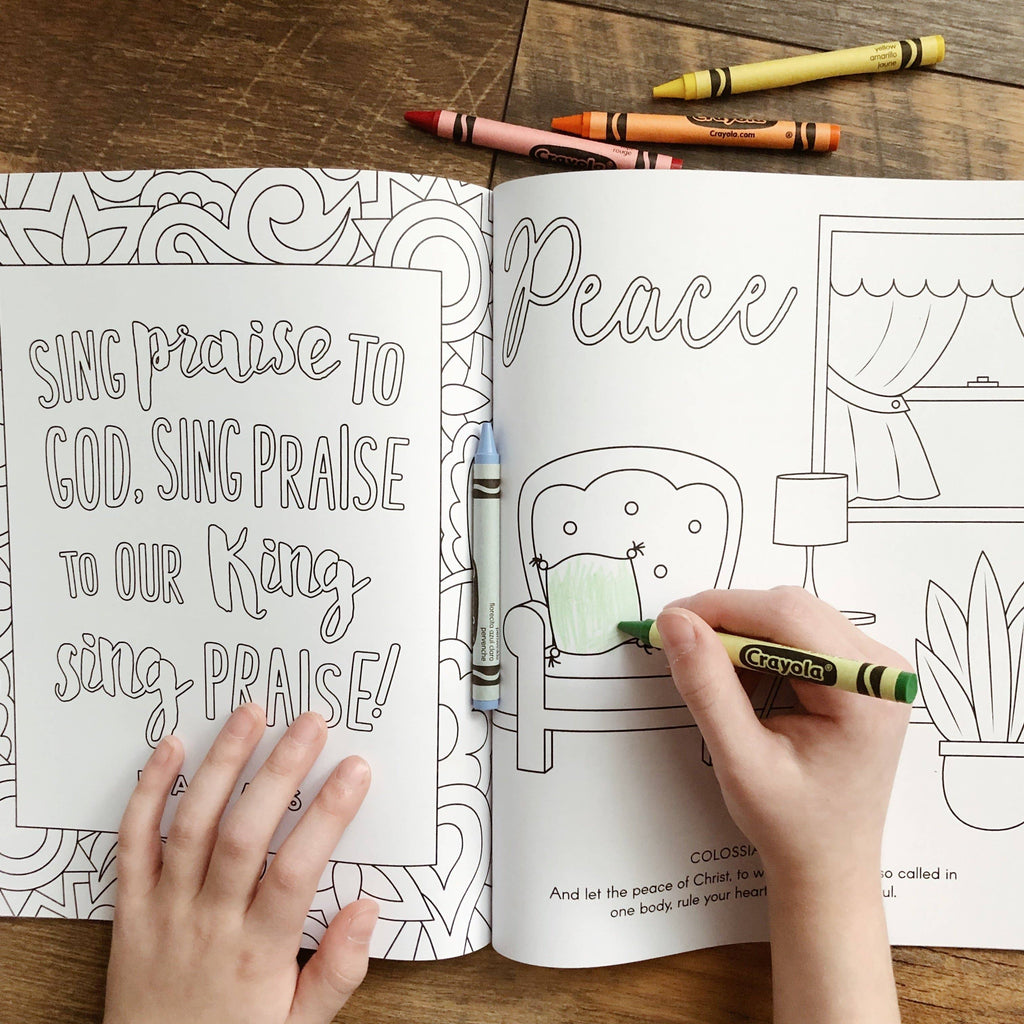 SING praise TO
GOD, SING PRAISE
TO OUR King
sing PRAISE!
Peace
COLOSSIA
And let the peace of Christ, to w so called in
one body, rule your heart ul.
yellow
amarillo
jaune
Crayola
Crayola.com
rouge
Crayola
florecita
azul claro
pervenche
Crayola